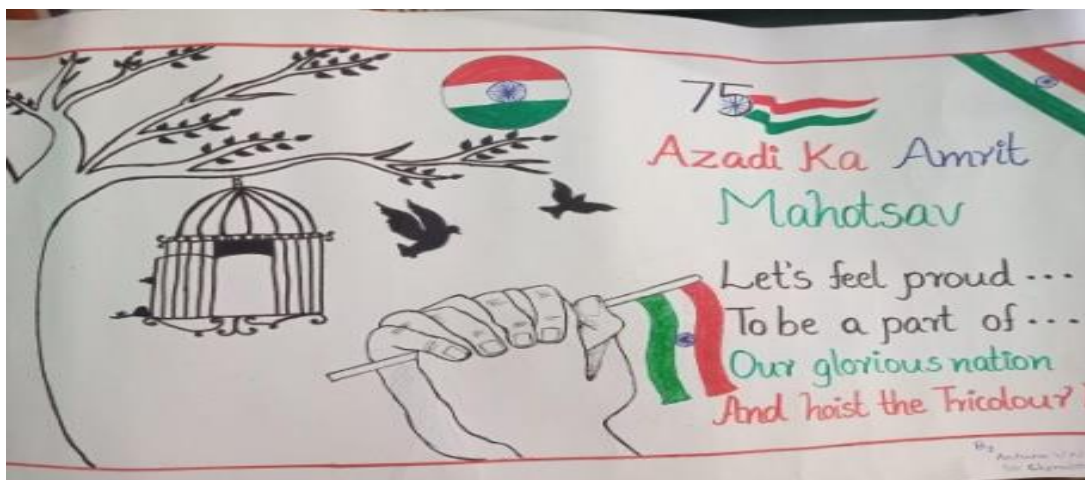 75
Azadi Ka Amrit
Mahotsav
Let's feel proud ...
To be a part of ...
Our glorious nation
And hoist the Tricolour?
By